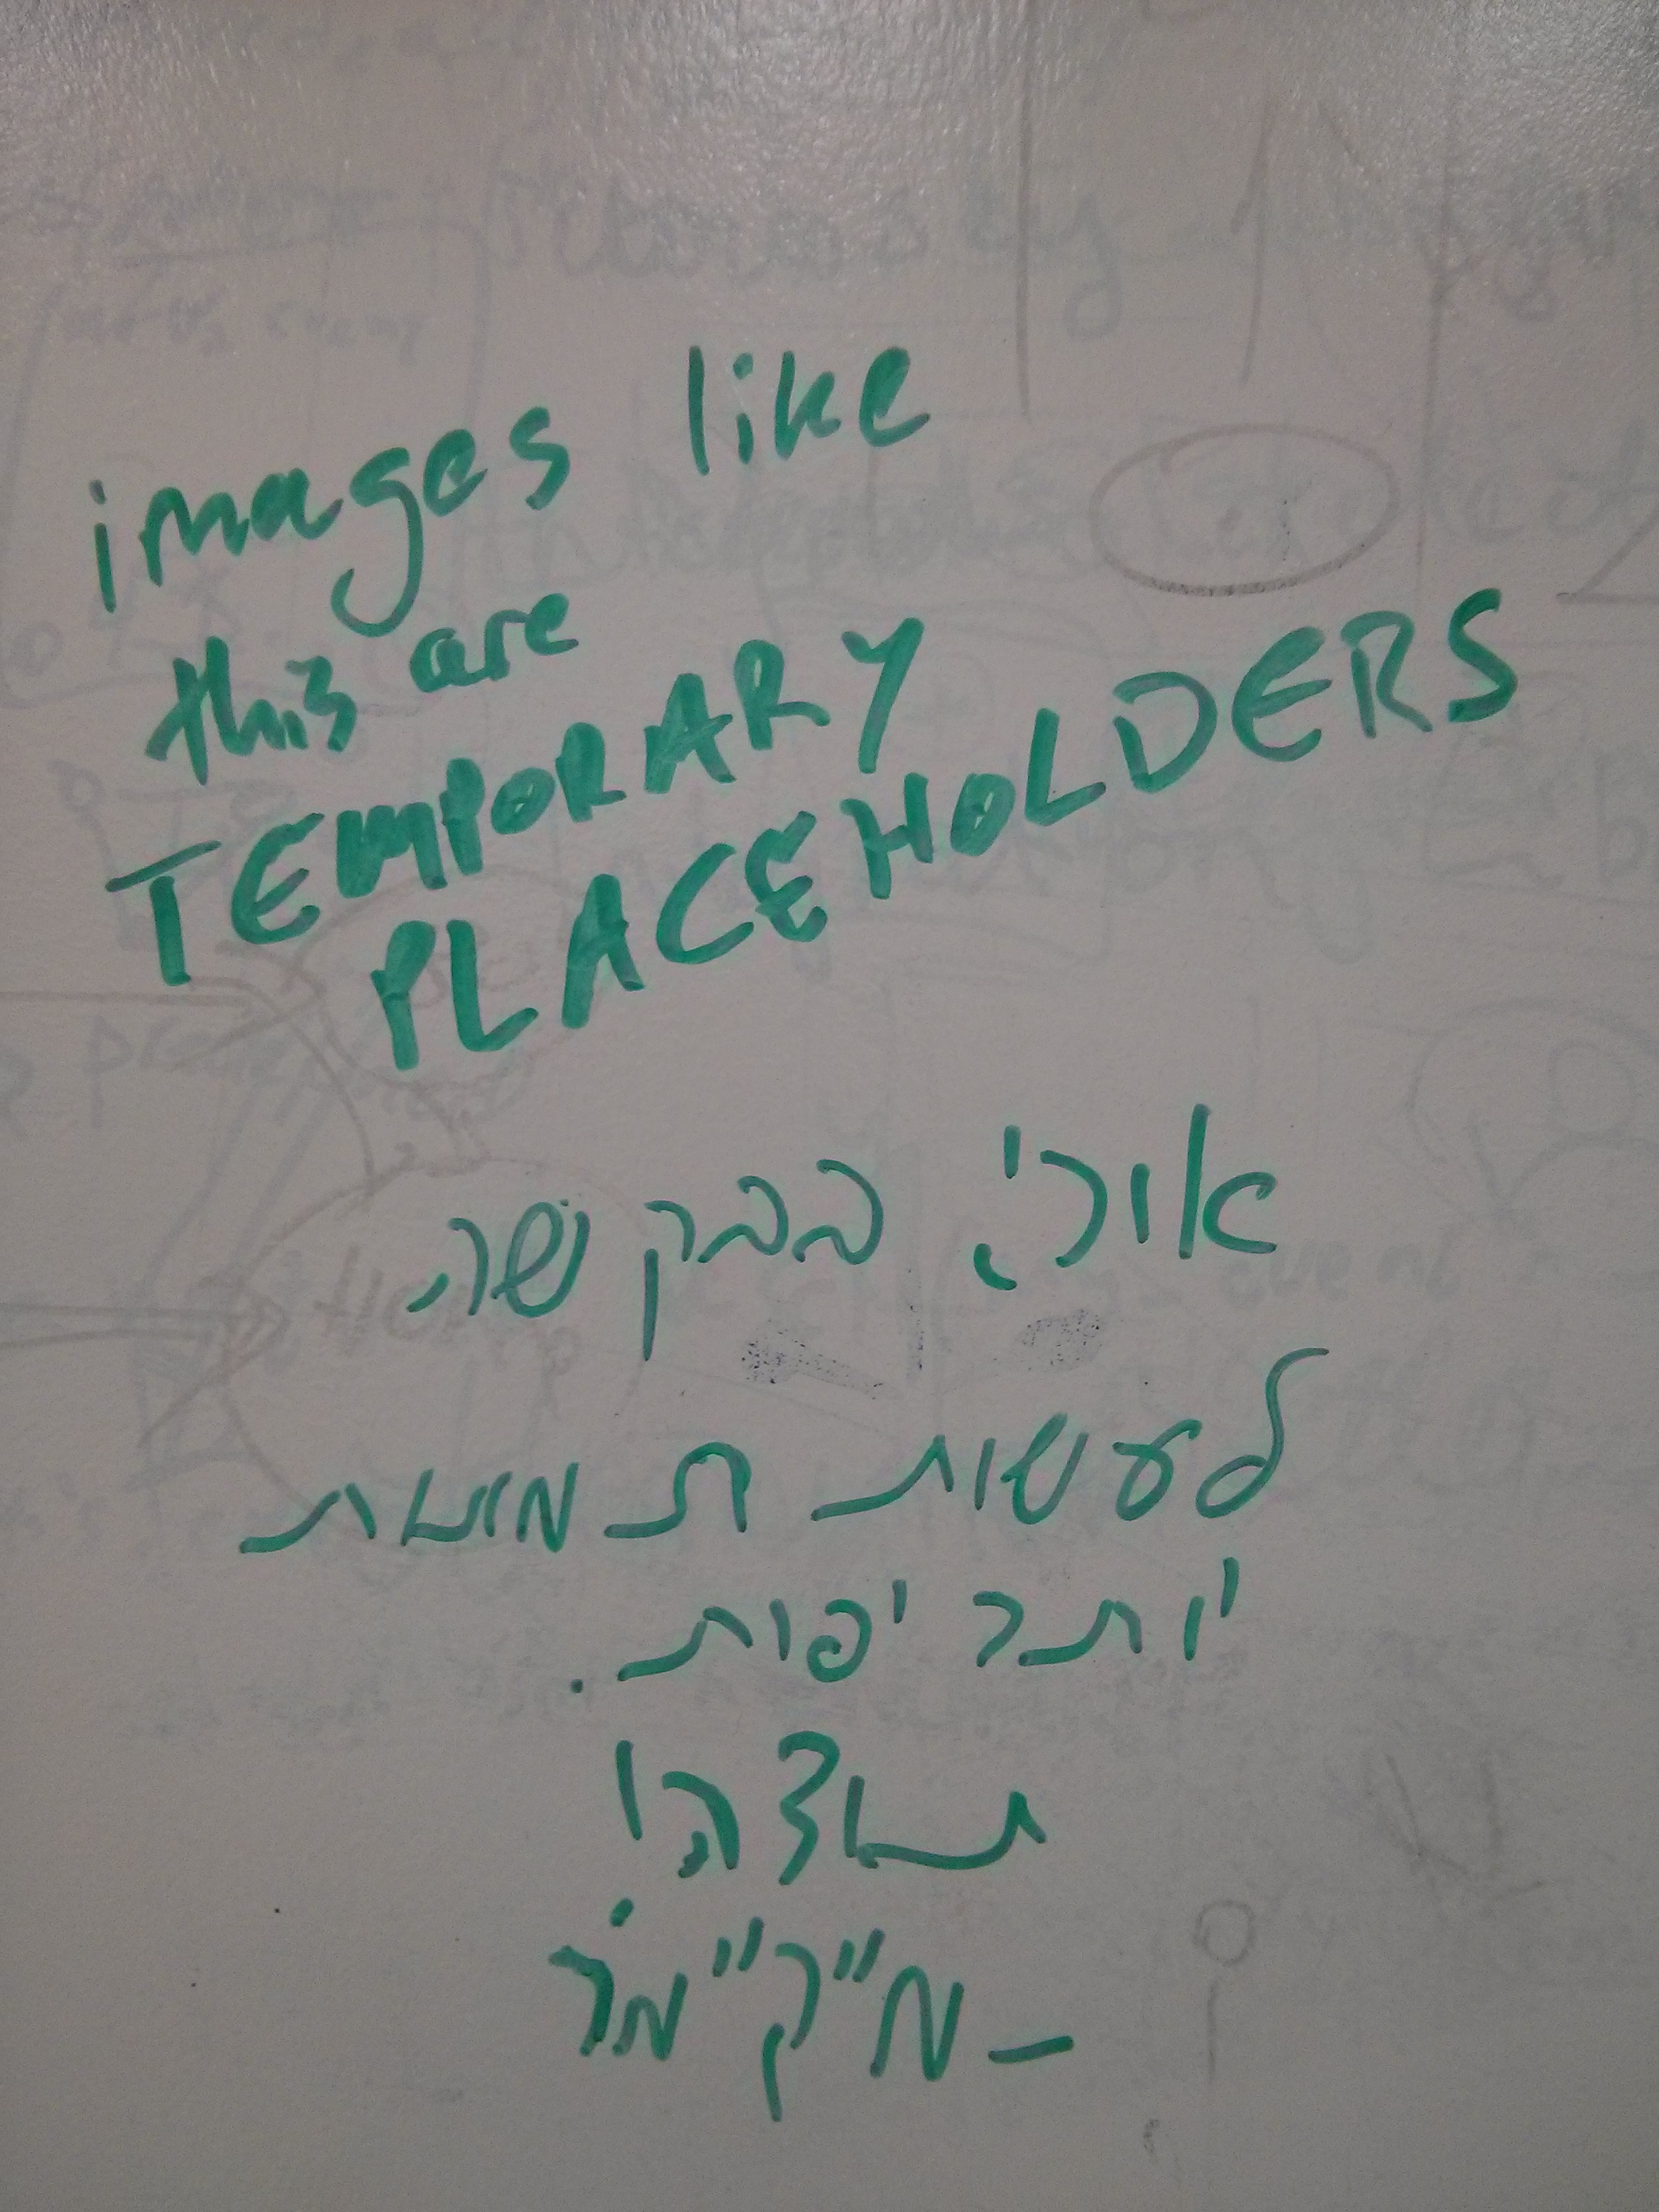 images like
this are
TEMPORARY
PLACEHOLDERS
אורי, בבקשה
לעשות תמונות
יותר יפות.
תודה!